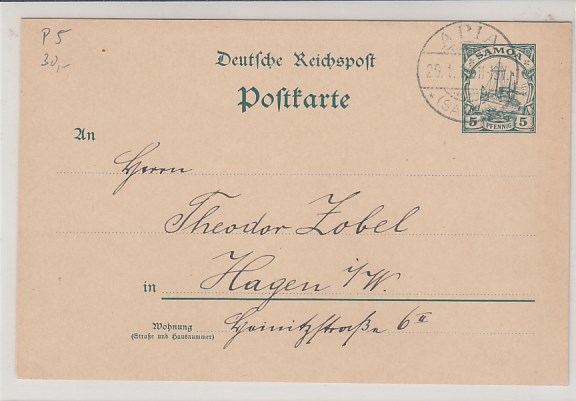 P 5
30,-
Deutsche Reichspost
Postkarte
APIA
29.1.
SAMOA
5 PFENNIG 5
An
Herrn
Theodor Zobel
in Hagen i/W.
Wohnung
(Straße und Hausnummer)
Heinitzstraße 6 II